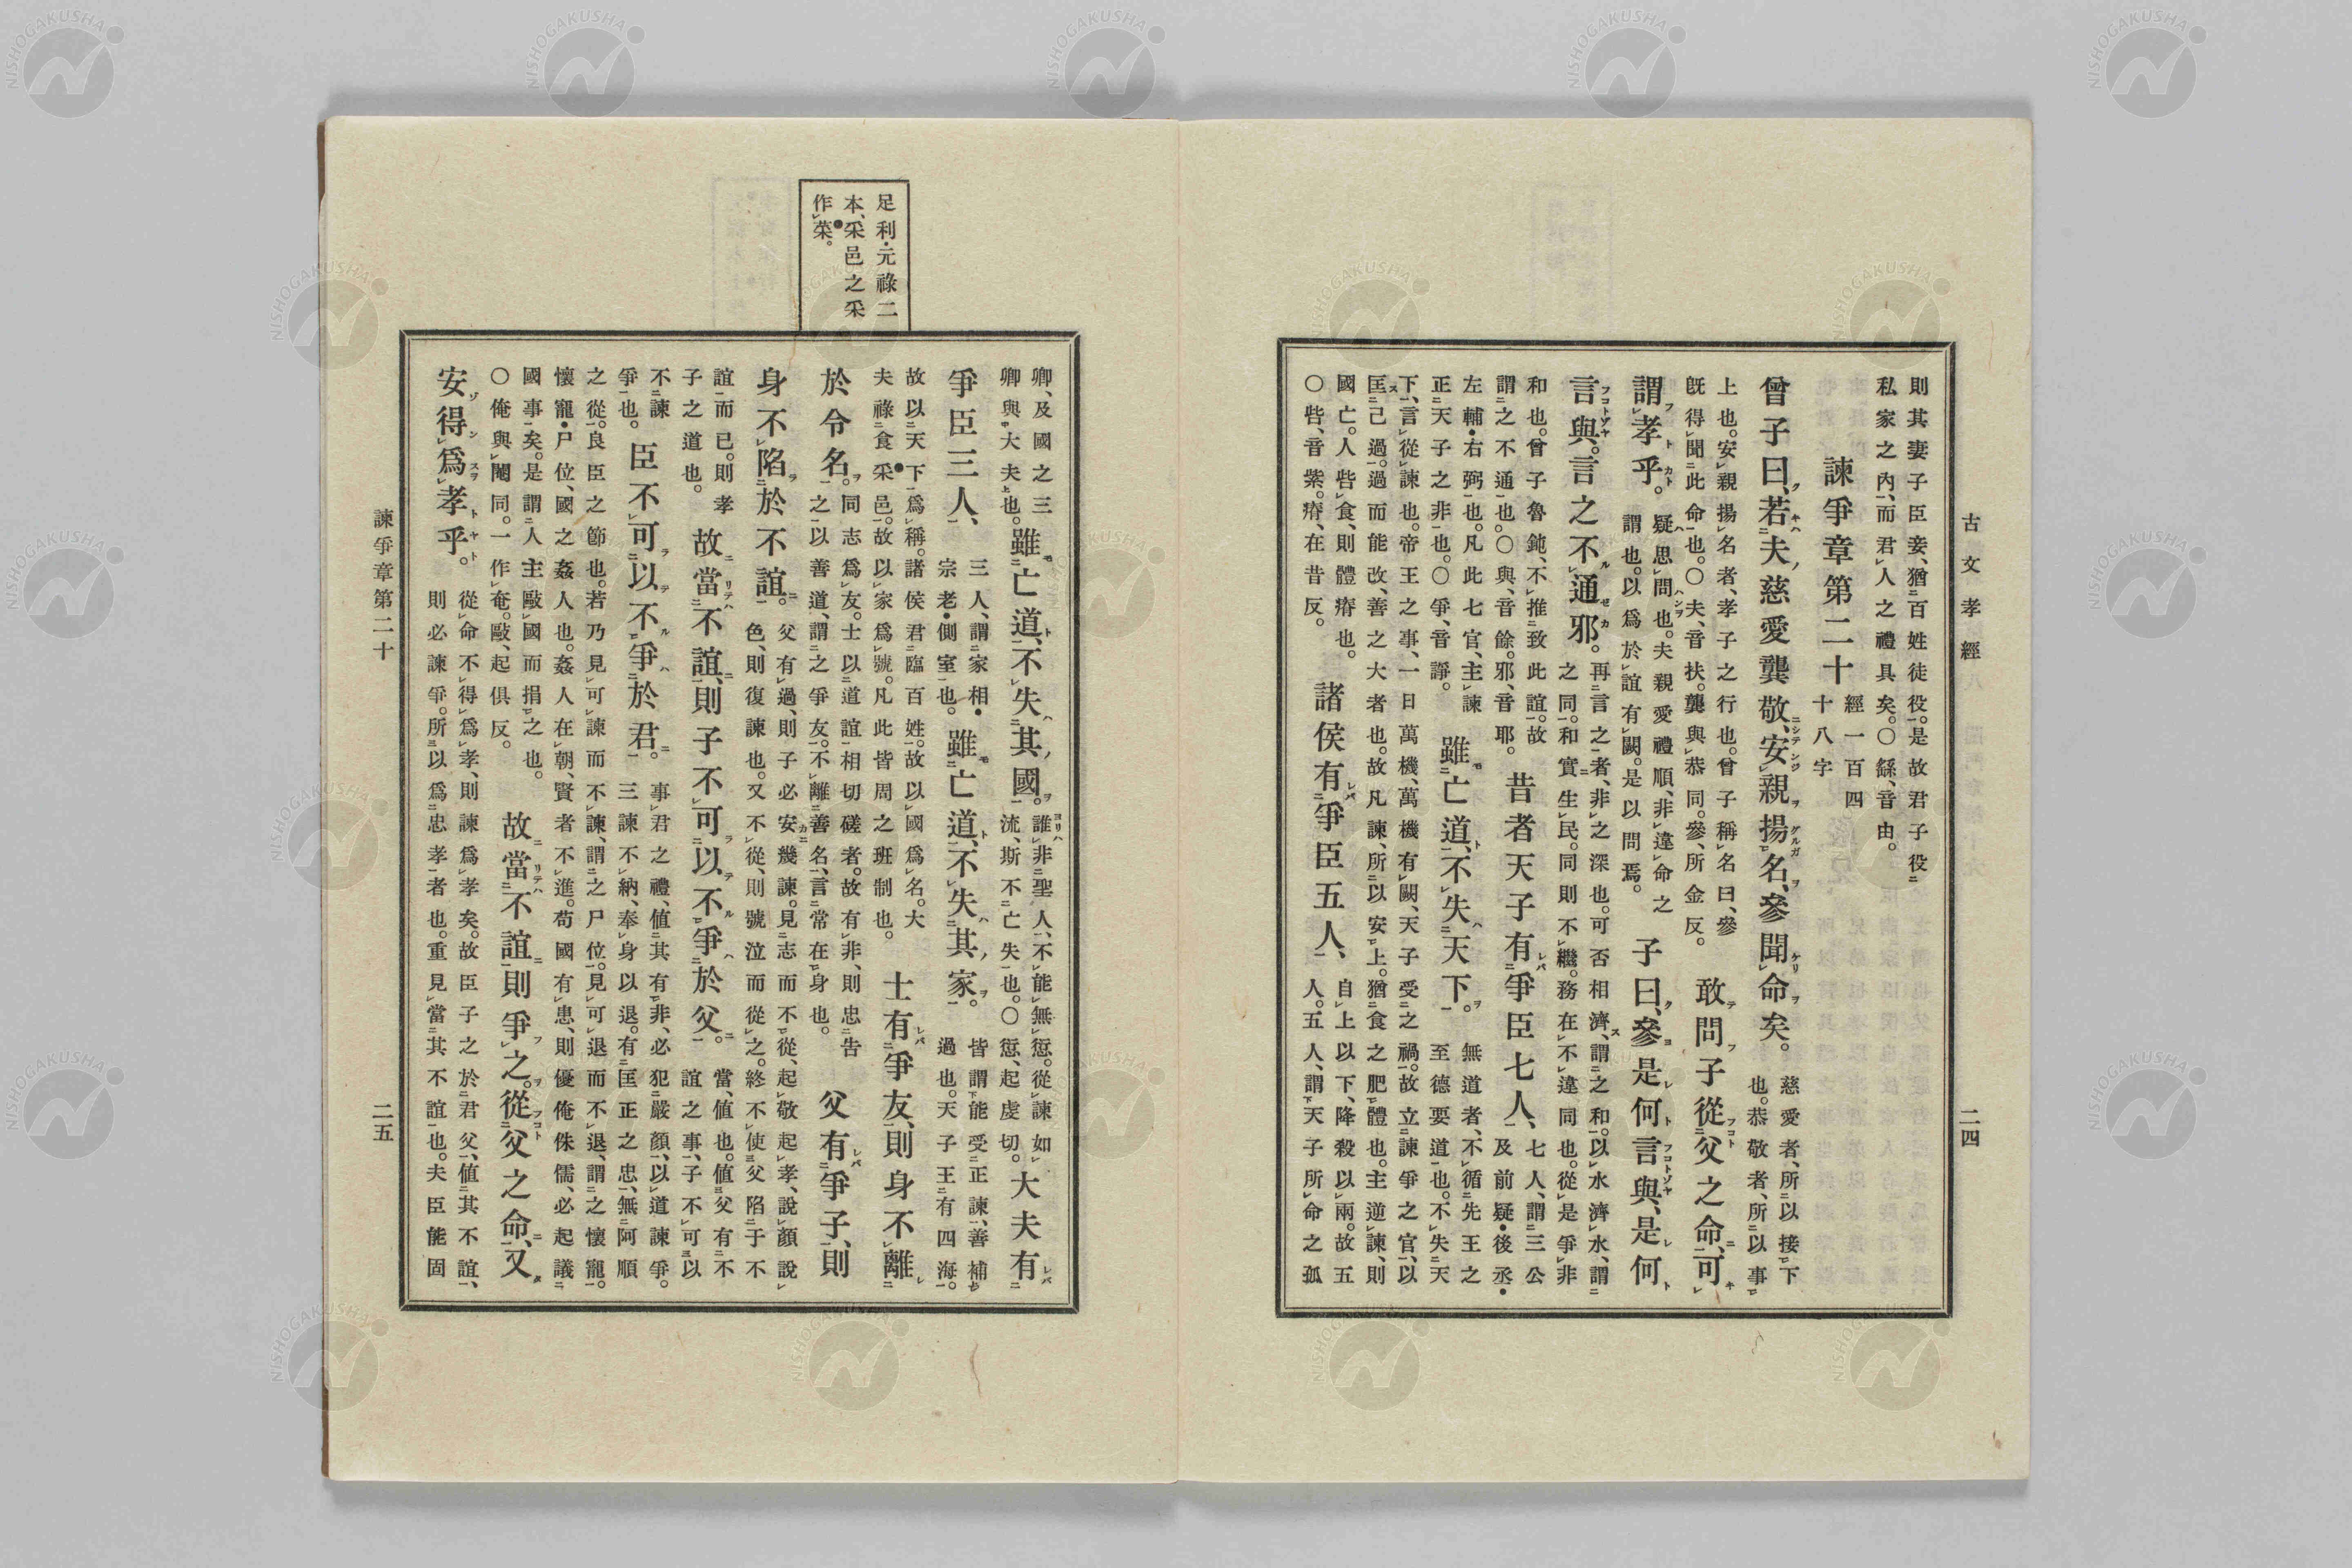 古文孝經
二四
則其妻子臣妾、猶百姓徒役。是故君子役
私家之內、而君人之禮具矣。〇繇、音由。
諫爭章第二十
經一百四
十八字
曾子曰、若夫慈愛龔敬、安親揚名、參聞命矣。
慈愛者、所以接下
也。恭敬者、所以事
上也。安親揚名者、孝子之行也。曾子稱名曰、參
旣得聞此命也。〇夫、音扶。龔與恭同。參、所金反。
敢問子從父之命、可
謂孝乎。
疑思問也。夫親愛禮順、非違命之
謂也。以爲於誼有闕。是以問焉。
子曰、參是何言與、是何
言與。言之不通邪。
再言之者、非之深也。可否相濟、謂之和。以水濟水、謂
之同。和實生民。同則不繼。務在不違同也。從是爭非
和也。曾子魯鈍、不推致此誼。故
謂之不通也。〇與、音餘。邪、音耶。
昔者天子有爭臣七人、
七人、謂三公
及前疑・後丞・
左輔・右弼也。凡此七官、主諫
正天子之非也。〇爭、音諍。
雖亡道、不失天下。
無道者、不循先王之
至德要道也。不失天
下、言從諫也。帝王之事、一日萬機、萬機有闕、天子受之禍。故立諫爭之官、以
匡己過。過而能改、善之大者也。故凡諫、所以安上。猶食之肥體也。主逆諫、則
國亡。人呰食、則體瘠也。
〇呰、音紫。瘠、在昔反。
諸侯有爭臣五人、
自上以下、降殺以兩。故五
人。五人、謂天子所命之孤
足利・元祿二
本、采邑之采
作菜。
卿、及國之三
卿與大夫也。
雖亡道、不失其國。
誰非聖人、不能無愆。從諫如
流、斯不亡失也。〇愆、起虔切。
大夫有
爭臣三人、
三人、謂家相・
宗老・側室也。
雖亡道、不失其家。
皆謂能受正諫、善補
過也。天子王有四海。
故以天下爲稱。諸侯君臨百姓。故以國爲名。大
夫祿食采邑。故以家爲號。凡此皆周之班制也。
士有爭友、則身不離
於令名。
同志爲友。士以道誼相切磋者。故有非、則忠告
之以善道、謂之爭友。不離善名、言常在身也。
父有爭子、則
身不陷於不誼。
父有過、則子必安幾諫。見志而不從、起敬起孝、說顏說
色、則復諫也。又不從、則號泣而從之。終不使父陷于不
誼而已。則孝
子之道也。
故當不誼、則子不可以不爭於父。
當、値也。値父有不
誼之事、子不可以
不諫
爭也。
臣不可以不爭於君。
事君之禮、値其有非、必犯嚴顏、以道諫爭。
三諫不納、奉身以退。有匡正之忠、無阿順
之從。良臣之節也。若乃見可諫而不諫、謂之尸位。見可退而不退、謂之懷寵。
懷寵・尸位、國之姦人也。姦人在朝、賢者不進。苟國有患、則優俺侏儒、必起議
國事矣。是謂人主敺國而捐之也。
〇俺與閹同。一作奄。敺、起俱反。
故當不誼則爭之。從父之命、又
安得爲孝乎。
從命不得爲孝、則諫爲孝矣。故臣子之於君父、値其不誼、
則必諫爭。所以爲忠孝者也。重見當其不誼也。夫臣能固
諫爭章第二十
二五